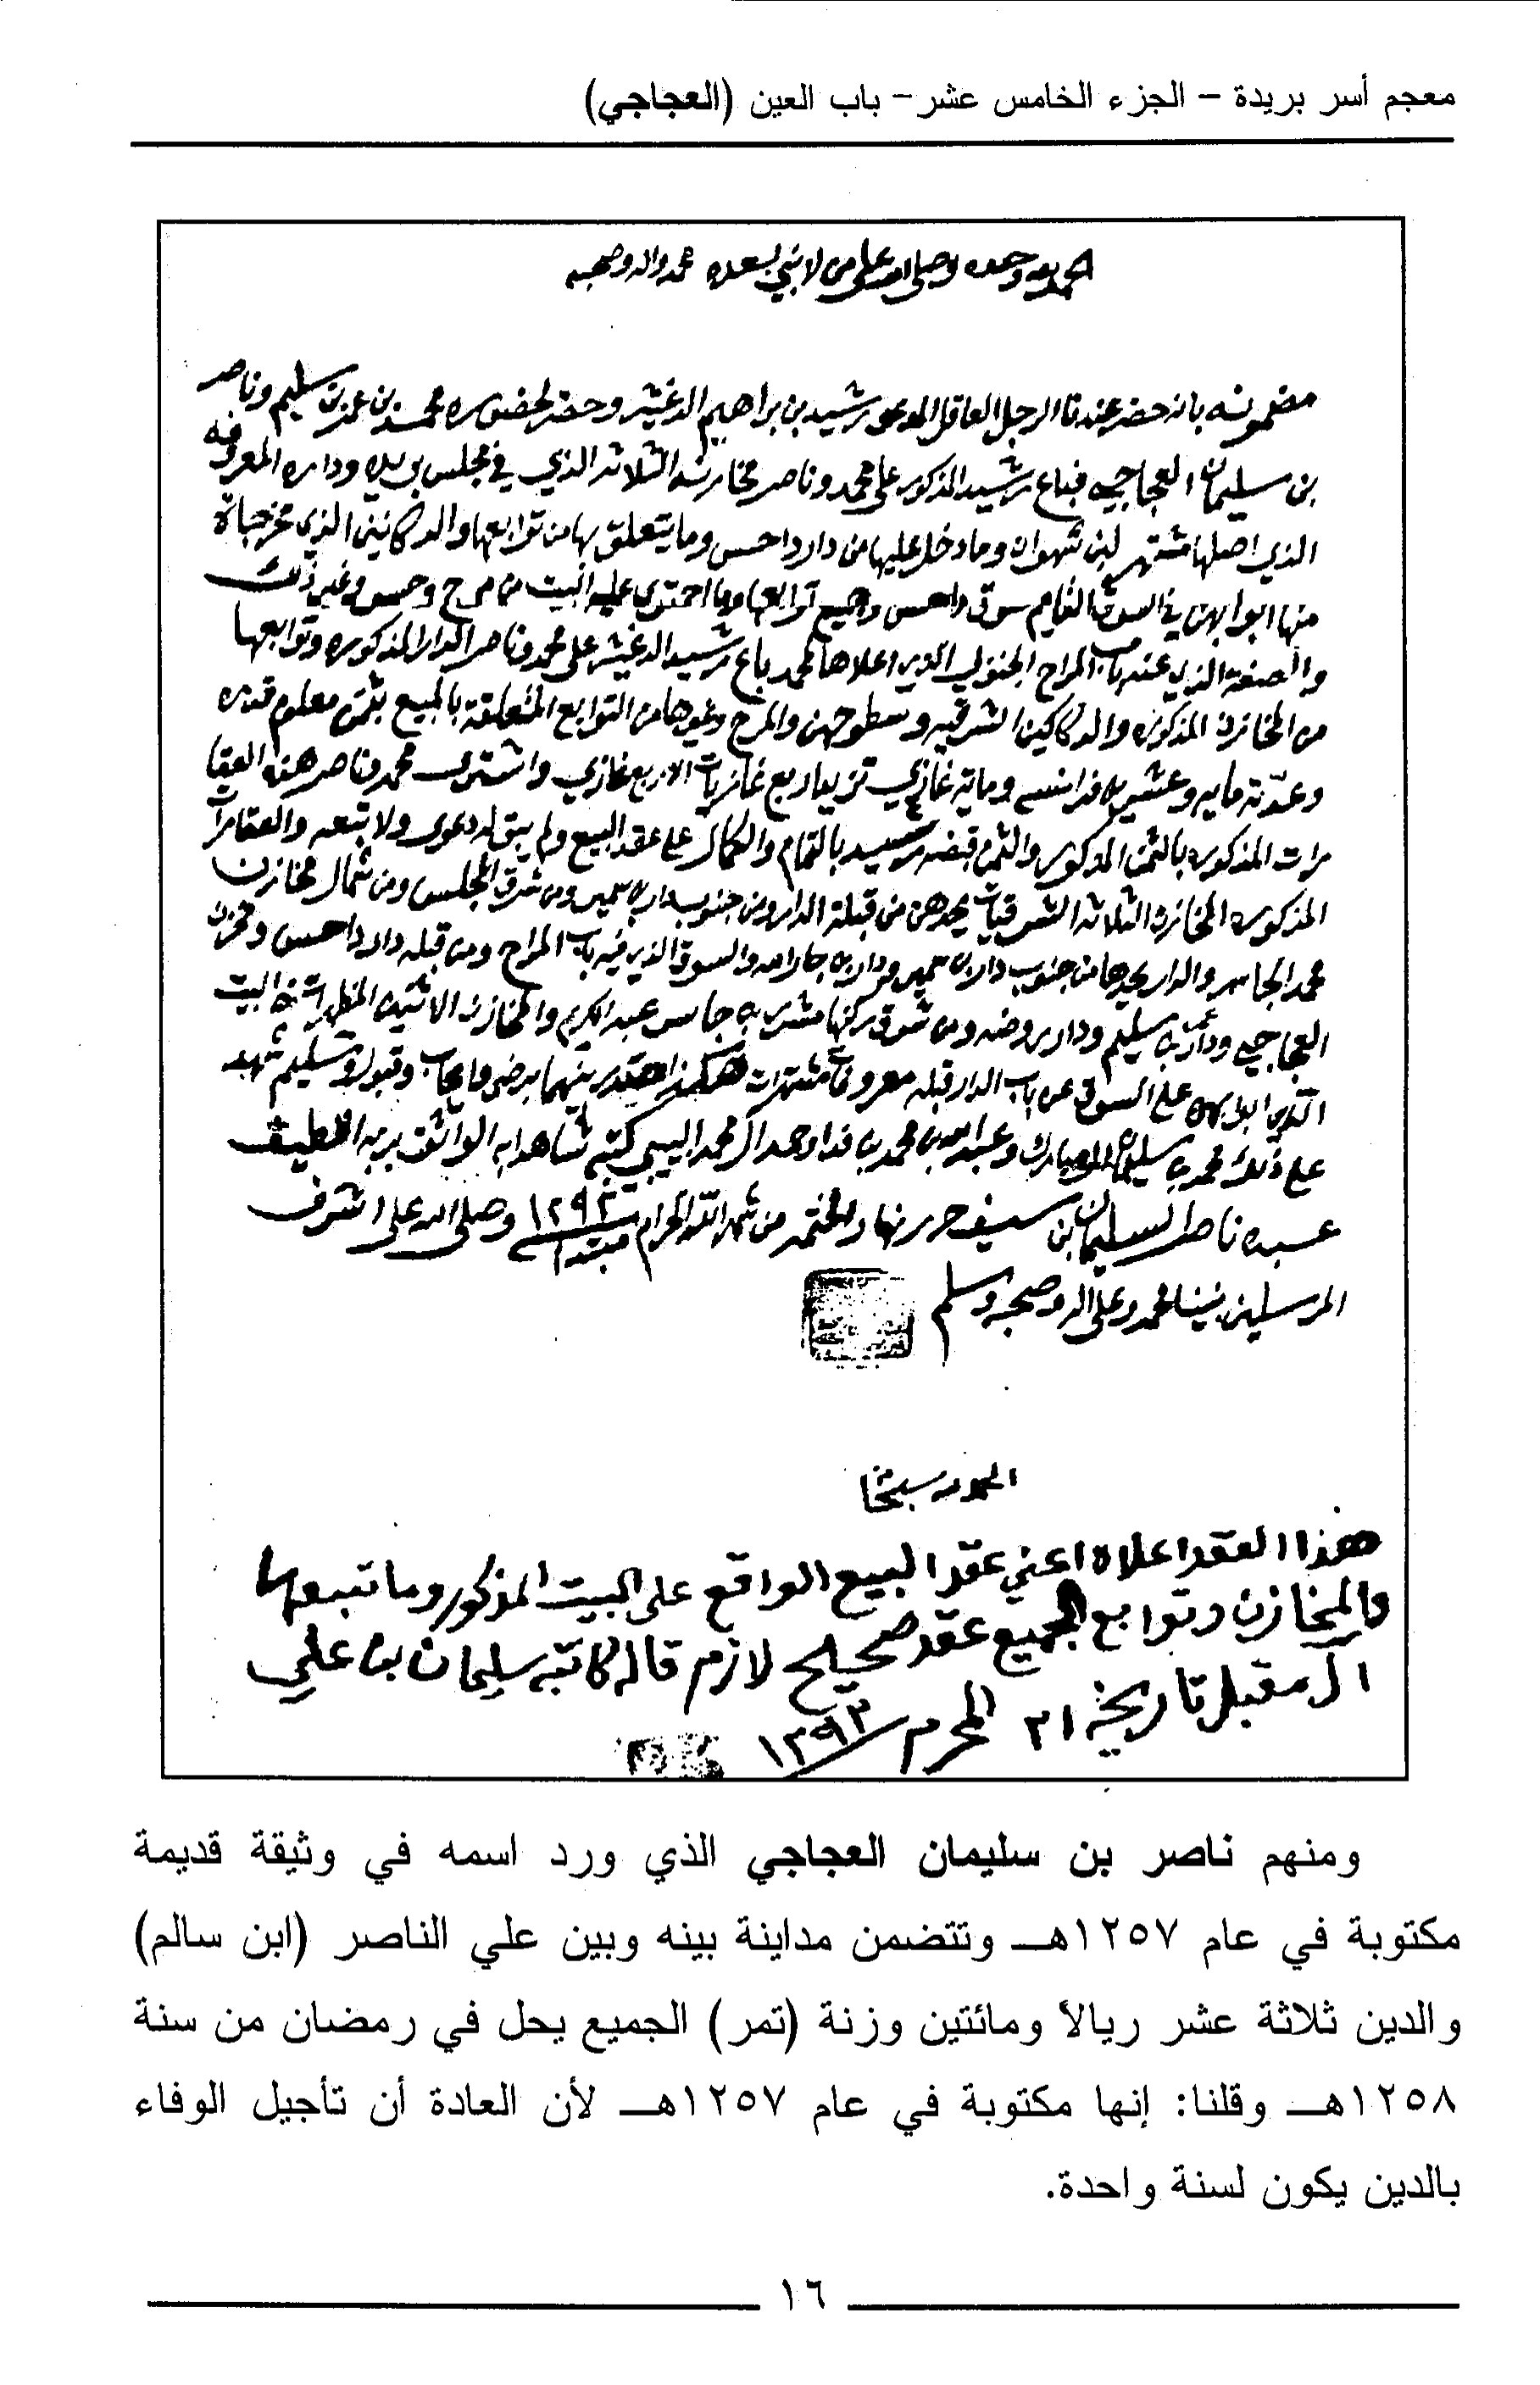 معجم أسر بريدة – الجزء الخامس عشر – باب العين (العجاجي)
الحمد لله وحده وصلى الله على من لا نبي بعده محمد واله وصحبه
مضمونه بانه حضر عندنا الرجل العاقل المدعو رشيد بن براهيم الدغيثر وحضر لحضوره محمد بن عمر بن سليم وناصر
بن سليمان العجاجي فباع رشيد المذكور على محمد وناصر مخازنه الثلاثه الذي في مجلس بريده وداره المعروفه
الذي اصلها مشتهر لبن شهوان وما دخل عليها من دار داحس وما يتعلق بها من توابعها والدكانين الذي
منها ابوابهن في السوق القايم سوق داحس وجميع توابعها وما احتوى عليه البيت من مراح وحوس وغير ذلك
والصفة الذي عند باب المراح الجنوبي الذي اعلاها لمحمد باع رشيد الدغيثر على محمد وناصر الدار المذكوره وتوابعها
من المخازن المذكوره والدكاكين الشرقيه وسطوحهن والمراح وغيرها من التوابع المتعلقة بالمبيع بثمن معلوم قدره
وعدته مايه وعشرين فرانسه وماية غازي تزيد اربع غازيات الاربع غازي واشترى محمد وناصر هذه العقا
رات المذكوره بالثمن المذكور والثمن قبضه رشيد بالتمام والكمال على عقد البيع ولم يبق له دعوى ولا تبعه والعقارات
المذكوره المخازن الثلاثه الشرقيات يحدهن من قبلة الدار ومن جنوب دار بن سمير ومن شرق المجلس ومن شمال مخازن
محمد الجاسر والدار يحدها من جنوب دار بن سمير ودار بن جارالله والسوق الذي فيه باب المراح ومن قبله دار داحس ومخزن
العجاجي ودار بن سليم ودار روضه ومن شرق جاسر عبدالكريم والمخازن الاثنين البيت
الذي ابوابهن على السوق عن باب الدار قبله معروفات مشتهرات هكذا صدر بينهما برضى وايجاب وقبول وتسليم شهد
على ذلك محمد بن سليمان المبارك وعبدالله بن محمد بن فدا وحمد آل محمد كتبه شاهدا به الواثق بربه اللطيف
عبده ناصر السليمان بن سيف حرر نهار المختتم من شهر الله الحرام مبتدا ١٢٩٣ وصلى الله على اشرف
المرسلين نبينا محمد وعلى اله وصحبه وسلم
الحمد لله سبحانه
هذا العقد اعلاه اعني عقد البيع الواقع على البيت المذكور وما تبعها
والمخازن وتوابع الجميع عقد صحيح لازم قاله كاتبه سليمان بن علي
ال مقبل تاريخه ٢١ المحرم ١٢٩٣
ومنهم ناصر بن سليمان العجاجي الذي ورد اسمه في وثيقة قديمة
مكتوبة في عام ١٢٥٧هـ وتتضمن مداينة بينه وبين علي الناصر (ابن سالم)
والدين ثلاثة عشر ريالاً ومائتين وزنة (تمر) الجميع يحل في رمضان من سنة
١٢٥٨هـ وقلنا: إنها مكتوبة في عام ١٢٥٧هـ لأن العادة أن تأجيل الوفاء
بالدين يكون لسنة واحدة.
١٦